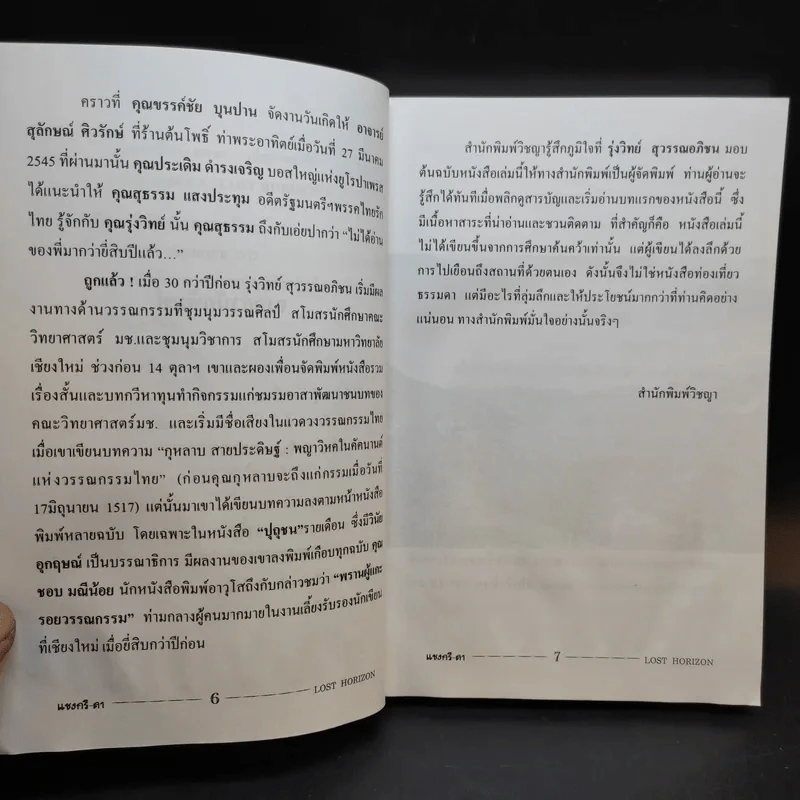 คราวที่ คุณขรรค์ชัย บุนปาน จัดงานวันเกิดให้ อาจารย์
สุลักษณ์ ศิวรักษ์ ที่ร้านต้นโพธิ์ ท่าพระอาทิตย์เมื่อวันที่ 27 มีนาคม
2545 ที่ผ่านมานั้น คุณประเดิม ดำรงเจริญ บอสใหญ่แห่งยุโรปาเพรส
ได้แนะนำให้ คุณสุธรรม แสงประทุม อดีตรัฐมนตรีฯพรรคไทยรัก
ไทย รู้จักกับ คุณรุ่งวิทย์ นั้น คุณสุธรรม ถึงกับเอ่ยปากว่า “ไม่ได้อ่าน
ของพี่มากว่ายี่สิบปีแล้ว...”
ถูกแล้ว ! เมื่อ 30 กว่าปีก่อน รุ่งวิทย์ สุวรรณอภิชน เริ่มมีผล
งานทางด้านวรรณกรรมที่ชุมนุมวรรณศิลป์ สโมสรนักศึกษาคณะ
วิทยาศาสตร์ มช.และชุมนุมวิชาการ สโมสรนักศึกษามหาวิทยาลัย
เชียงใหม่ ช่วงก่อน 14 ตุลาฯ เขาและผองเพื่อนจัดพิมพ์หนังสือรวม
เรื่องสั้นและบทกวีหาทุนทำกิจกรรมแก่ชมรมอาสาพัฒนาชนบทของ
คณะวิทยาศาสตร์มช. และเริ่มมีชื่อเสียงในแวดวงวรรณกรรมไทย
เมื่อเขาเขียนบทความ “กุหลาบ สายประดิษฐ์ : พญาวิหคในคัคนานต์
แห่งวรรณกรรมไทย” (ก่อนคุณกุหลาบจะถึงแก่กรรมเมื่อวันที่
17มิถุนายน 1517) แต่นั้นมาเขาได้เขียนบทความลงตามหน้าหนังสือ
พิมพ์หลายฉบับ โดยเฉพาะในหนังสือ “ปุถุชน”รายเดือน ซึ่งมีวินัย
อุกฤษณ์ เป็นบรรณาธิการ มีผลงานของเขาลงพิมพ์เกือบทุกฉบับ คุณ
ชอบ มณีน้อย นักหนังสือพิมพ์อาวุโสถึงกับกล่าวชมว่า “พรานผู้แกะ
รอยวรรณกรรม” ท่ามกลางผู้คนมากมายในงานเลี้ยงรับรองนักเขียน
ที่เชียงใหม่ เมื่อยี่สิบกว่าปีก่อน
แชงกรี-ลา 6 LOST HORIZON
สำนักพิมพ์วิชญารู้สึกภูมิใจที่ รุ่งวิทย์ สุวรรณอภิชน มอบ
ต้นฉบับหนังสือเล่มนี้ให้ทางสำนักพิมพ์เป็นผู้จัดพิมพ์ ท่านผู้อ่านจะ
รู้สึกได้ทันทีเมื่อพลิกดูสารบัญและเริ่มอ่านบทแรกของหนังสือนี้ ซึ่ง
มีเนื้อหาสาระที่น่าอ่านและชวนติดตาม ที่สำคัญก็คือ หนังสือเล่มนี้
ไม่ได้เขียนขึ้นจากการศึกษาค้นคว้าเท่านั้น แต่ผู้เขียนได้ลงลึกด้วย
การไปเยือนถึงสถานที่ด้วยตนเอง ดังนั้นจึงไม่ใช่หนังสือท่องเที่ยว
ธรรมดา แต่มีอะไรที่ลุ่มลึกและให้ประโยชน์มากกว่าที่ท่านคิดอย่าง
แน่นอน ทางสำนักพิมพ์มั่นใจอย่างนั้นจริงๆ
สำนักพิมพ์วิชญา
แชงกรี-ลา 7 LOST HORIZON